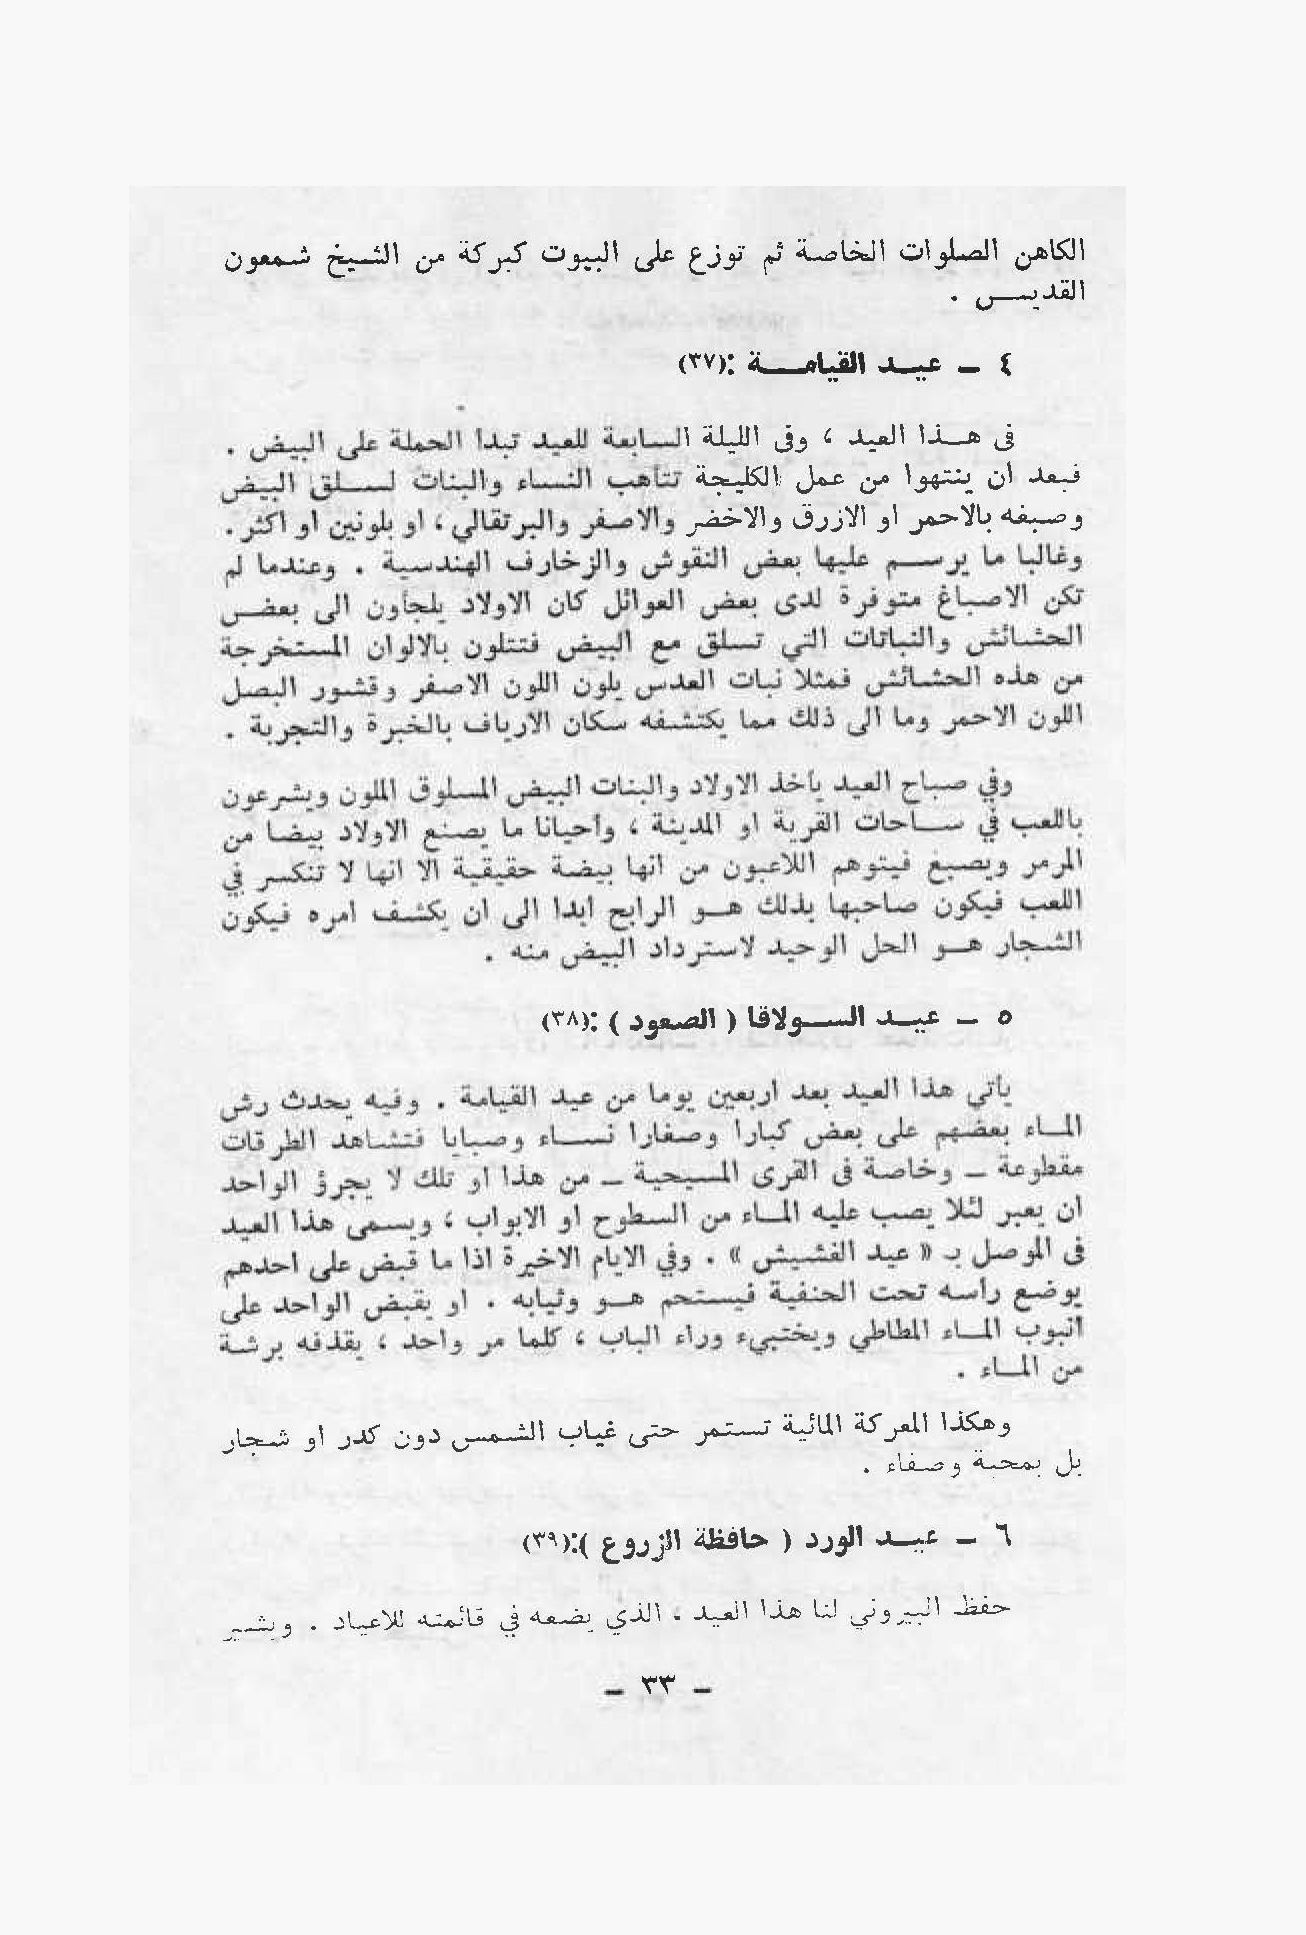 الكاهن الصلوات الخاصة ثم توزع على البيوت كبركة من الشيخ شمعون
القديس .
٤ ــ عيد القيامة :(٣٧)
فى هذا العيد ، وفى الليلة السابعة للعيد تبدا الحملة على البيض .
فبعد ان ينتهوا من عمل الكليجة تتأهب النساء والبنات لسلق البيض
وصبغه بالاحمر او الازرق والاخضر والاصفر والبرتقالي ، او بلونين او اكثر .
وغالبا ما يرسم عليها بعض النقوش والزخارف الهندسية . وعندما لم
تكن الاصباغ متوفرة لدى بعض العوائل كان الاولاد يلجأون الى بعض
الحشائش والنباتات التي تسلق مع البيض فتتلون بالالوان المستخرجة
من هذه الحشائش فمثلا نبات العدس يلون اللون الاصفر وقشور البصل
اللون الاحمر وما الى ذلك مما يكتشفه سكان الارياف بالخبرة والتجربة .
وفي صباح العيد يأخذ الاولاد والبنات البيض المسلوق الملون ويشرعون
باللعب في ساحات القرية او المدينة ، وأحيانا ما يصنع الاولاد بيضا من
المرمر ويصبغ فيتوهم اللاعبون من انها بيضة حقيقية الا انها لا تنكسر في
اللعب فيكون صاحبها بذلك هو الرابح ابدا الى ان يكشف امره فيكون
الشجار هو الحل الوحيد لاسترداد البيض منه .
٥ ــ عيد السولاقا ( الصعود ) :(٣٨)
يأتي هذا العيد بعد اربعين يوما من عيد القيامة . وفيه يحدث رش
الماء بعضهم على بعض كبارا وصغارا نساء وصبايا فتشاهد الطرقات
مقطوعة ــ وخاصة فى القرى المسيحية ــ من هذا او تلك لا يجرؤ الواحد
ان يعبر لئلا يصب عليه الماء من السطوح او الابواب ، ويسمى هذا العيد
فى الموصل بـ « عيد الفشيش » . وفي الايام الاخيرة اذا ما قبض على احدهم
يوضع رأسه تحت الحنفية فيستحم هو وثيابه . او يقبض الواحد على
انبوب الماء المطاطي ويختبيء وراء الباب ، كلما مر واحد ، يقذفه برشة
من الماء .
وهكذا المعركة المائية تستمر حتى غياب الشمس دون كدر او شجار
بل بمحبة وصفاء .
٦ ــ عيد الورد ( حافظة الزروع ):(٣٩)
حفظ البيروني لنا هذا العيد . الذي يضعه في قائمته للاعياد . ويشير
ــ ٣٣ ــ